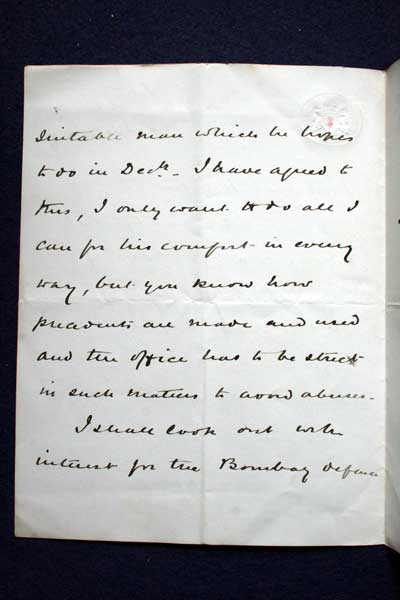 suitable man which he hopes
to do in Decr. I have agreed to
this, I only want to do all I
can for his comfort in every
way, but you know how
precedents are made and used
and the office has to be strict
in such matters to avoid abuses.
I shall look out with
interest for the Bombay defence